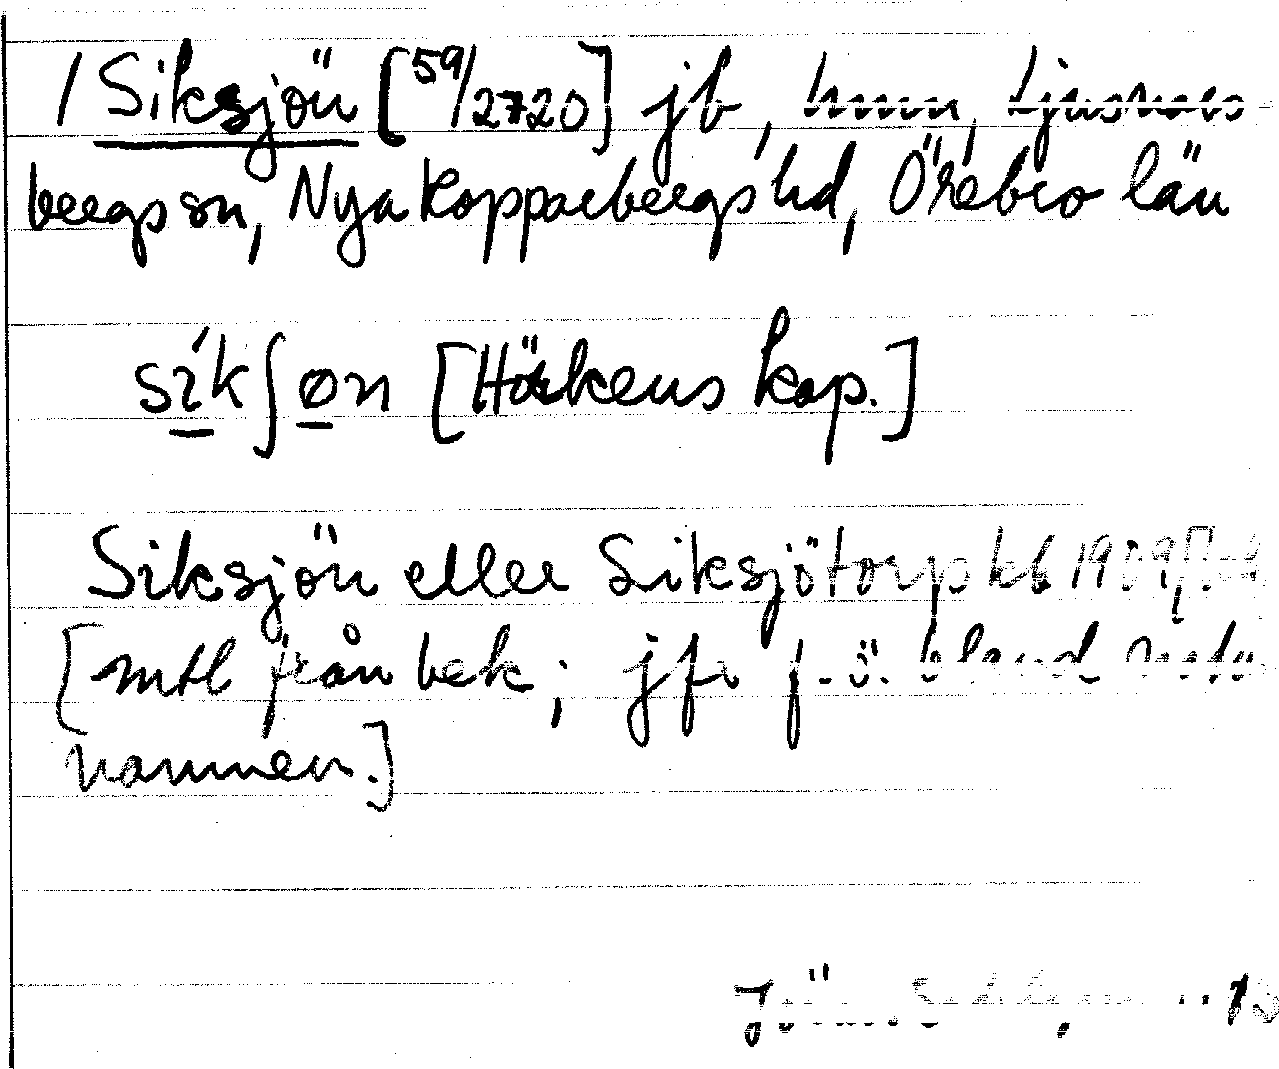 / Siksjön [59/2720] jb, hmn, Ljusnars
bergs sn, Nya Kopparbergs hd, Örebro län
sı́kʃøn [Hörkens kap.]
Siksjön eller Siksjötorp kb 1909
[mtl från bek; jfr f.ö. bland
namnen.]